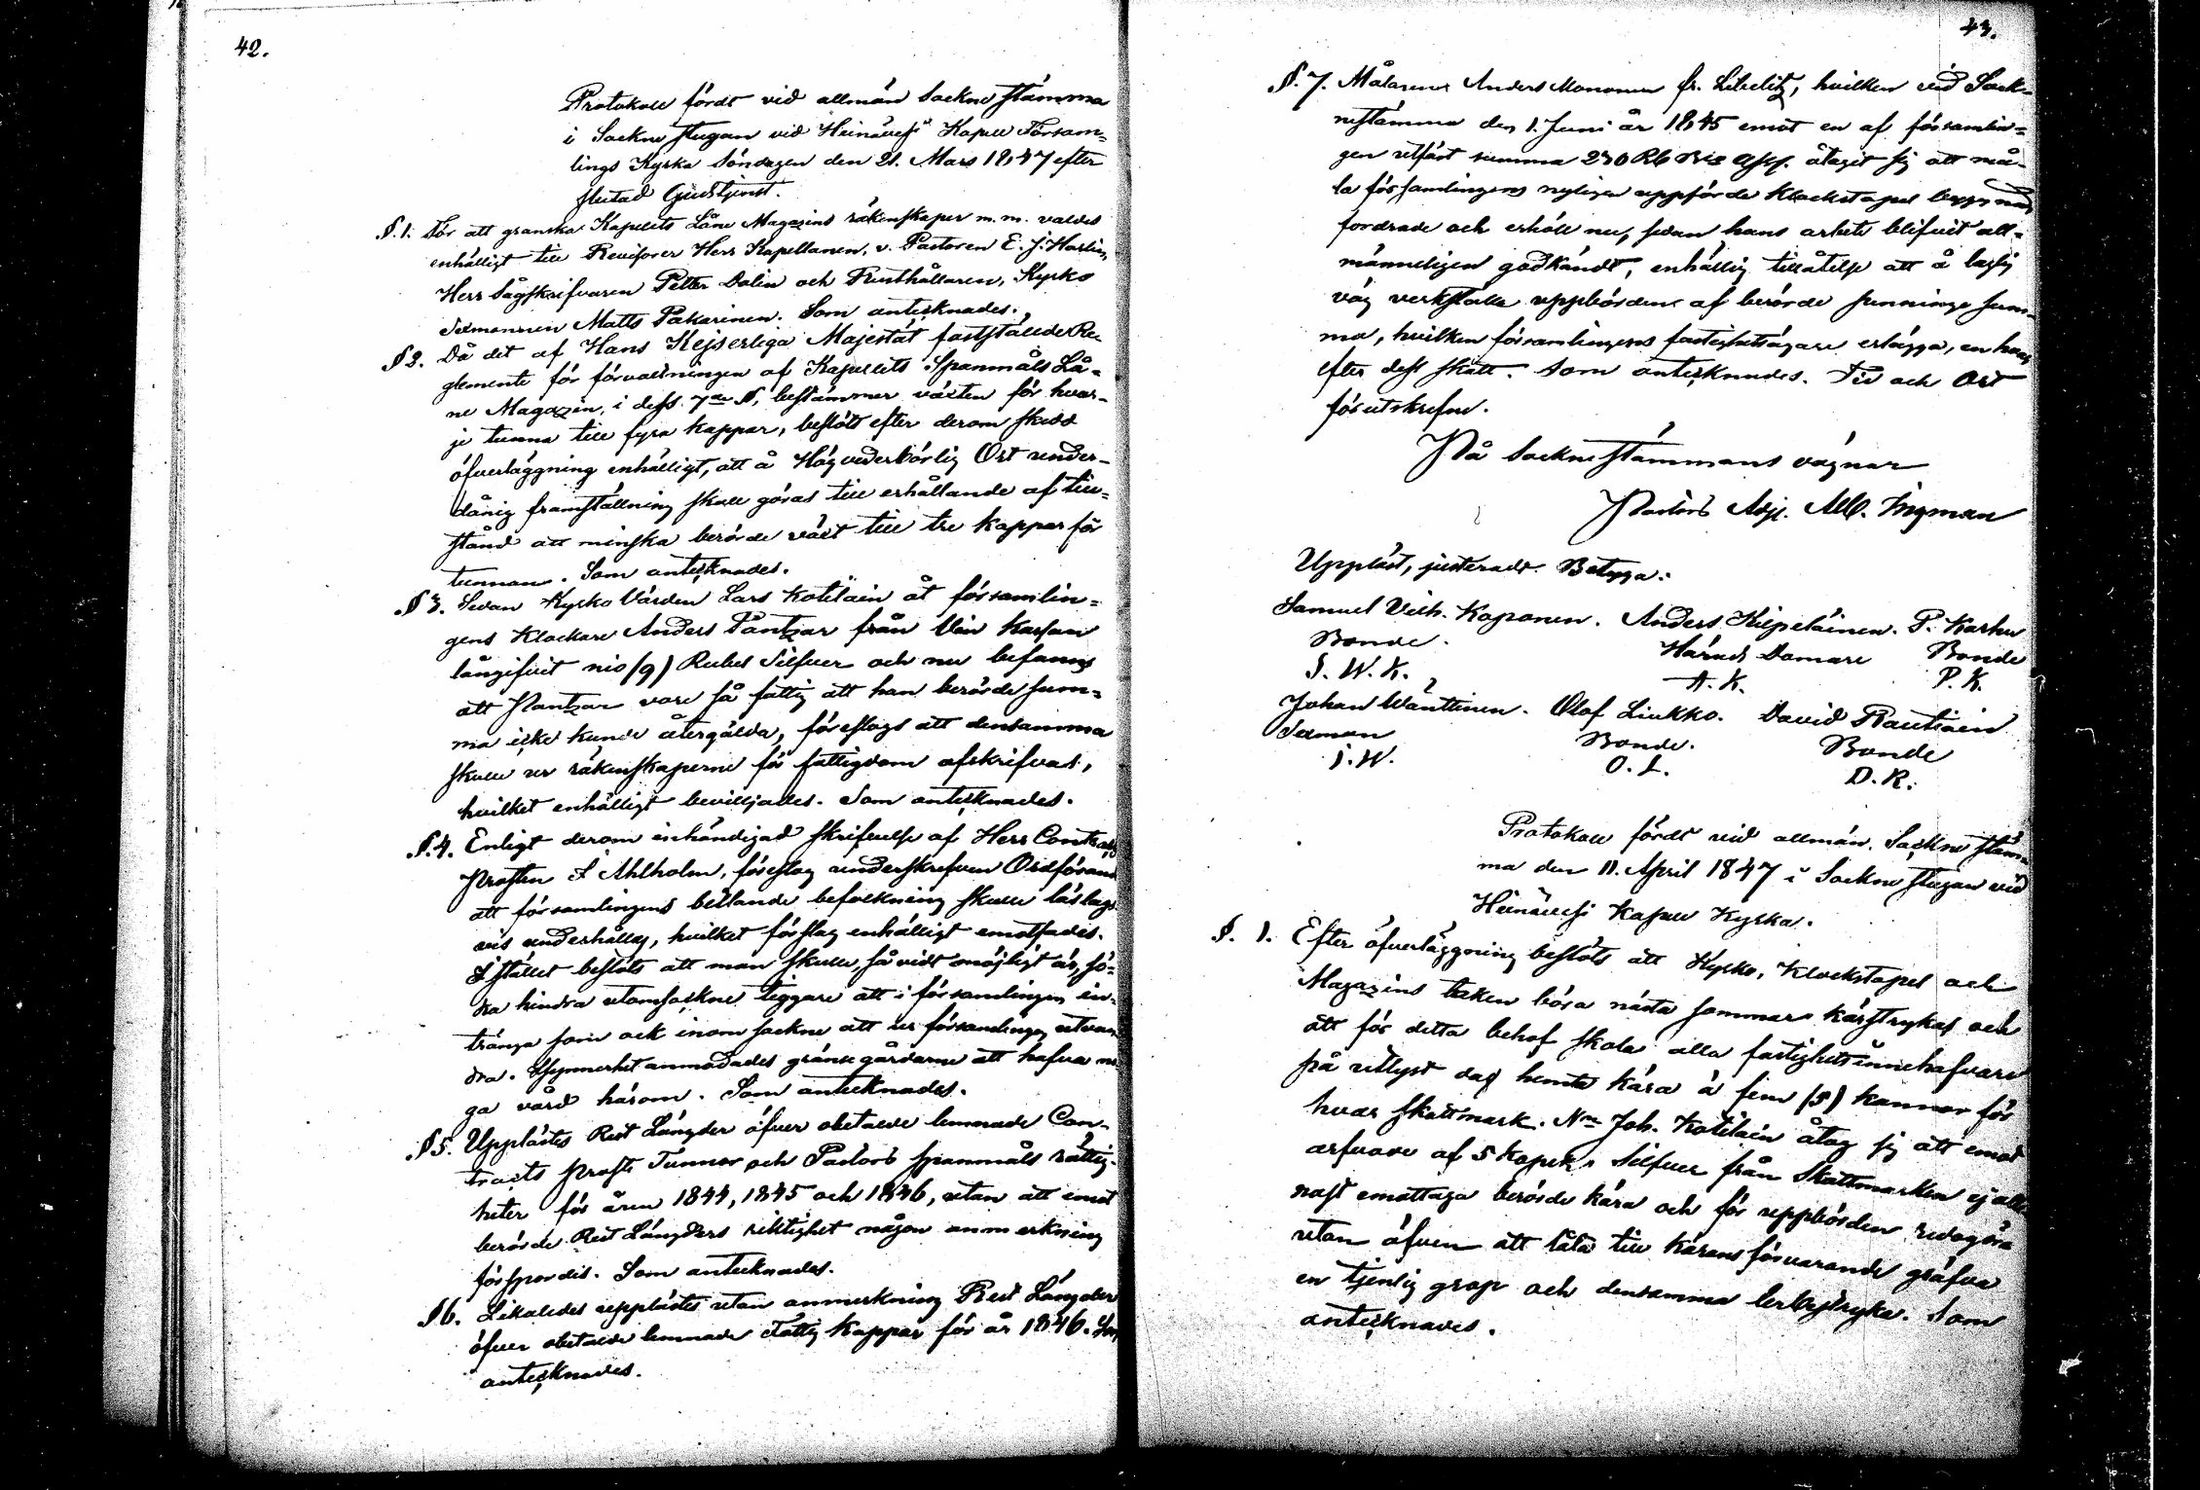 42.
Protokoll fördt vid allmän Sockne stämma
i Socknestugan vid Heinävesi Kapell Försam-
lings Kyrka Söndagen den 21. Mars 1847 efter
slutad Gudstjenst.
§. 1. För att granska Kapellets Låne Magazins räkenskaper m.m. valdes
enhälligt till Revisorer Herr Kapellanen, v. Pastoren E. J.
Herr Sågskrifvaren Petter Dolin och Rusthållaren, Kyrko
Sexmannen Matts Pakarinen. Som antecknades.
§ 2. Då det af Hans Kejserliga Majestät fastställde Re-
glemente för förvaltningen af Kapellets Spanmåls Lå-
ne Magazin, i dess 7de §, bestämmer växten för hvar-
je tunna till fyra kappar, beslöts efter derom skedd
öfverläggning enhälligt, att å Högvederbörlig Ort under-
dånig framställning skall göras till erhållande af till-
stånd att minska berörde växt till tre kappar för
tunnan. Som antecknades.
§ 3. Sedan Kyrko Värden Lars Kotilain åt församlin-
gens Klockare Anders Pantzar från Vin Kassan
långifvit nio (9) Rubel Silfver och nu befanns
att Pantzar vore så fattig att han berörde sum-
ma icke kunde återgälda, föreslogs att densamma
skulle ur räkenskaperne för fattigdom afskrifvas,
hvilket enhälligt beviljades. Som antecknades.
§. 4. Enligt derom inhändigad skrifvelse af Herr Contracts
Prosten J Ahlholm, föreslog underskrefven Ordförande
att församlingens betlande befolkning skulle
vis underhållas, hvilket förslag enhälligt emotsades.
I stället beslöts att man skulle, så vidt möjligt är, sö-
ka hindra utomsockne tiggare att i församlingen in-
tränga som ock inom sockne att ur församlingen utvan-
dra. I synnerhet anmodades gränsegårdarne att hafva no-
ga vård härom. Som antecknades.
§ 5. Upplästes Rest Längder öfver obetalde lemnade Con-
tracts Prosts Tunnor och Pastors spanmåls rättig-
heter för åren 1844, 1845 och 1846, utan att emot
berörde Rest Längders riktighet någon anmerkning
försporдes. Som antecknades.
§ 6. Likaledes upplästes utan anmerkning Rest Längder
öfver obetalde lemnade Fattig Kappar för år 1846. Som
antecknades.
43.
§. 7. Målaren Anders Mononen fr. Libelitz, hvilken vid Sock-
nestämma den 1. Juni år 1845 emot en af församlin-
gen utfäst summa 230 Rb åtagit sig att må-
la församlingens nyligen uppförde Klockstapel
fordrade och erhöll nu, sedan hans arbete blifvit all-
männeligen godkändt, enhällig tillåtelse att å laglig
väg verkställa uppbörden af berörde penninge sum-
ma, hvilken församlingens fastighetsägare erlägga, en hvar
efter dess skatt. Som antecknades. Tid och Ort
förutskrefne.
På Socknestämmans vägnar
Pastors Adj. Alb. Ingman
Uppläst, justeradt. Betyga:
Samuel Vilh. Koponen. Anders Kilpeläinen. P. Karhu
Bonde. Härads Domare Bonde
S. W. K. A. K. P. K.
Johan Wänttinen. Olof Liukko. David Rautiain
Sexman Bonde. Bonde
J. W. O. L. D. R.
Protokoll fördt vid allmän Sockne stäm-
ma den 11. April 1847 i Socknestugan vid
Heinävesi Kapell Kyrka.
§. 1. Efter öfverläggning beslöts att Kyrko, Klockstapel och
Magazins taken böra nästa sommar kärstrykas och
att för detta behof skola alla fastighetsinnehafvare
på utlyst dag hemta kära à fem (5) kannor för
hvar skattmark. Nm Joh. Kotilain åtog sig att emot
arfvode af 5 Kopek Silfver från Skattmarken ej alle-
nast emottaga berörde kära och för uppbörden redogöra
utan äfven att låta till kärans förvarande gräfva
en tjenlig grop och densamma Som
antecknades.